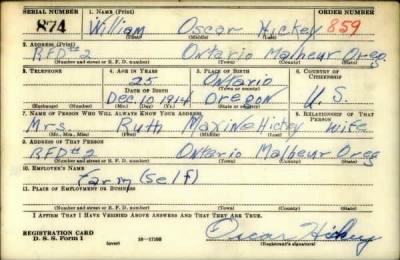 SERIAL NUMBER 1. NAME (Print) ORDER NUMBER
874 William Oscar Hickey 859
(First) (Middle) (Last)
2. ADDRESS (Print)
RFD#2 Ontario Malheur Oreg.
(Number and street or R. F. D. number) (Town) (County) (State)
3. TELEPHONE 4. AGE IN YEARS 5. PLACE OF BIRTH 6. COUNTRY OF CITIZENSHIP
25 Ontario
DATE OF BIRTH (Town or county)
Dec. 10, 1914 Oregon U.S.
(Exchange) (Number) (Mo.) (Day) (Yr.) (State or country)
7. NAME OF PERSON WHO WILL ALWAYS KNOW YOUR ADDRESS 8. RELATIONSHIP OF THAT PERSON
Mrs. Ruth Maxine Hickey Wife
(Mr., Mrs., Miss) (First) (Middle) (Last)
9. ADDRESS OF THAT PERSON
RFD#2 Ontario Malheur Oreg
(Number and street or R. F. D. number) (Town) (County) (State)
10. EMPLOYER'S NAME
Farm (self)
11. PLACE OF EMPLOYMENT OR BUSINESS
(Number and street or R. F. D. number) (Town) (County) (State)
I AFFIRM THAT I HAVE VERIFIED ABOVE ANSWERS AND THAT THEY ARE TRUE.
REGISTRATION CARD
D. S. S. Form 1 (over) 16—17105 Oscar Hickey
(Registrant's signature)